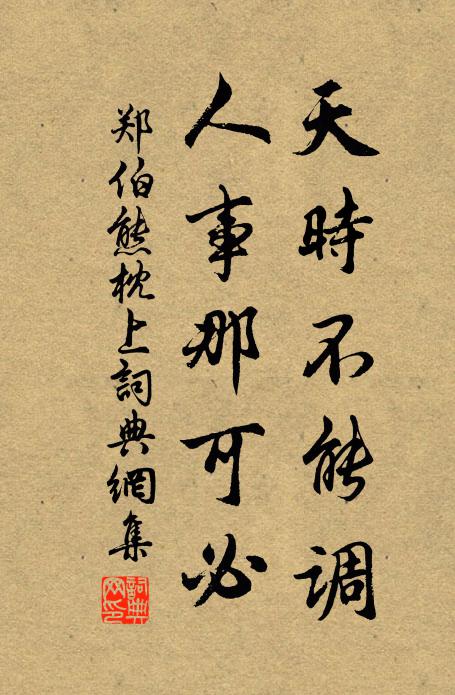 天時不能調
人事那可必
郑伯熊枕上詞典網集
詞典网印